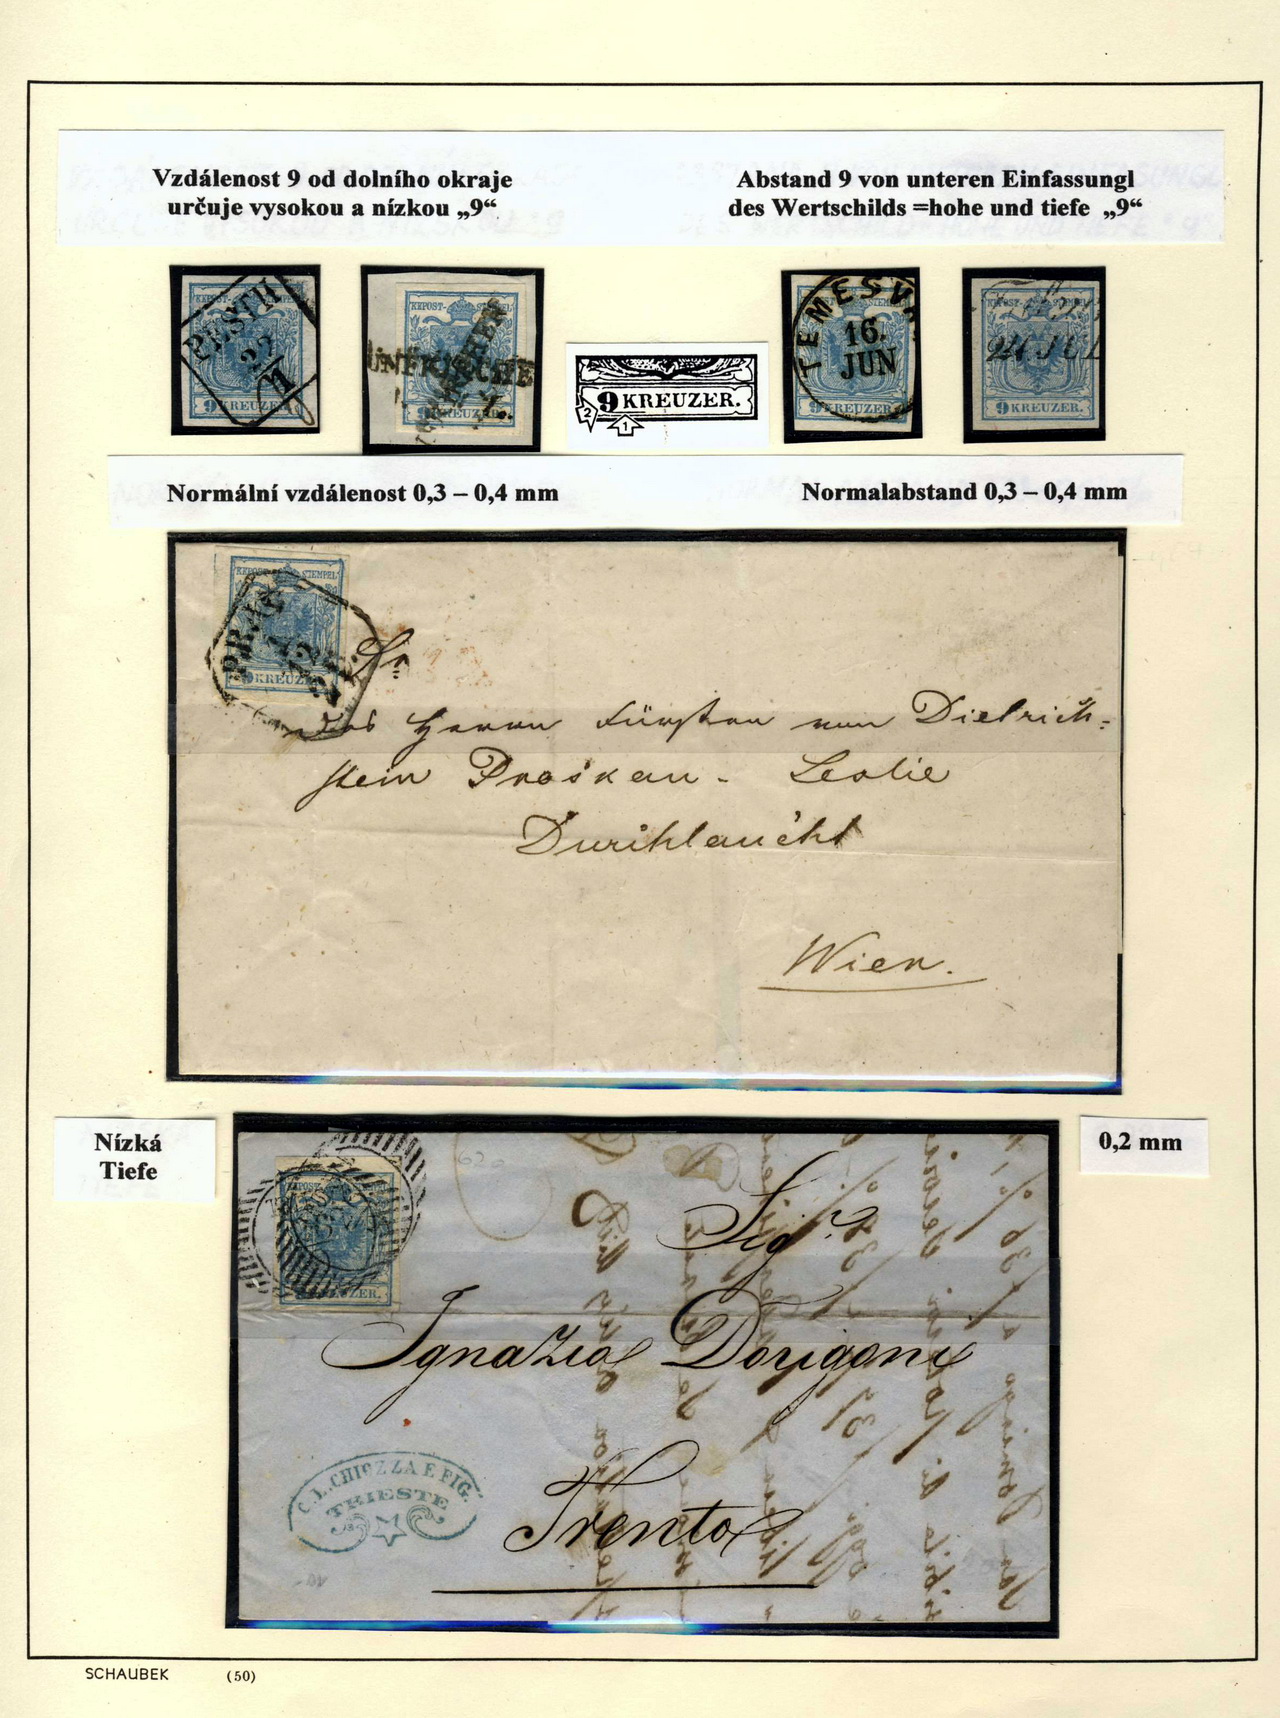 Vzdálenost 9 od dolního okraje
určuje vysokou a nízkou „9“
Abstand 9 von unteren Einfassungl
des Wertschilds =hohe und tiefe „9“
KKPOST-STEMPEL
PESTH
22
9 KREUZER.
KKPOST-STEMPEL
ÜNFKIRCHE
9 KREUZER.
2
9 KREUZER.
1
TEMESV
16.
JUN
9 KREUZER.
KKPOST-STEMPEL
24 JUL
9 KREUZER.
Normální vzdálenost 0,3 – 0,4 mm
Normalabstand 0,3 – 0,4 mm
KKPOST-STEMPEL
PRAG
12
9 KREUZER.
Sr
des Herrn Fürsten von Dietrich-
stein Proskau - Leslie
Durchlaucht
Wien.
Nízká
Tiefe
0,2 mm
620
KREUZER.
Sigr
Ignazio Dorigoni
Trento
C. L. CHIOZZA E FIG.
TRIESTE
SCHAUBEK (50)